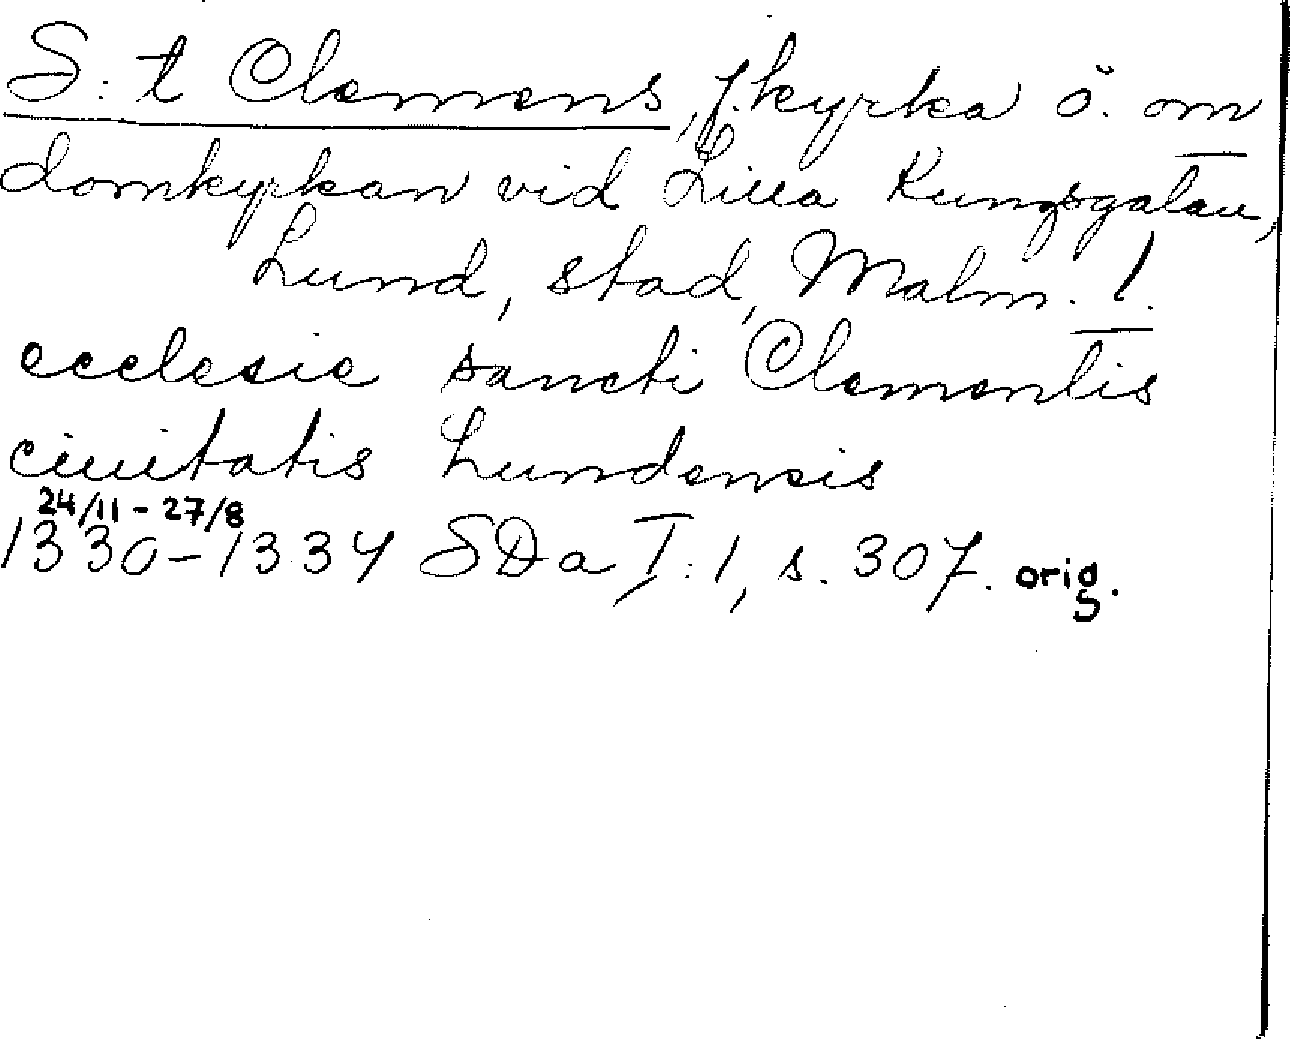 S:t Clemens, f. kyrka ö. om
domkyrkan vid Lilla Kungsgatan,
Lund, stad, Malm. l.
ecclesie sancti Clementis
ciuitatis Lundensis
24/11 - 27/8
1330-1334 SDa I:1, s. 307. orig.